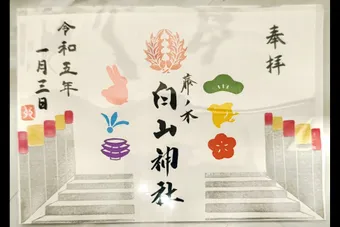 奉拝
麻ノ木
白山神社
令和五年
一月三日